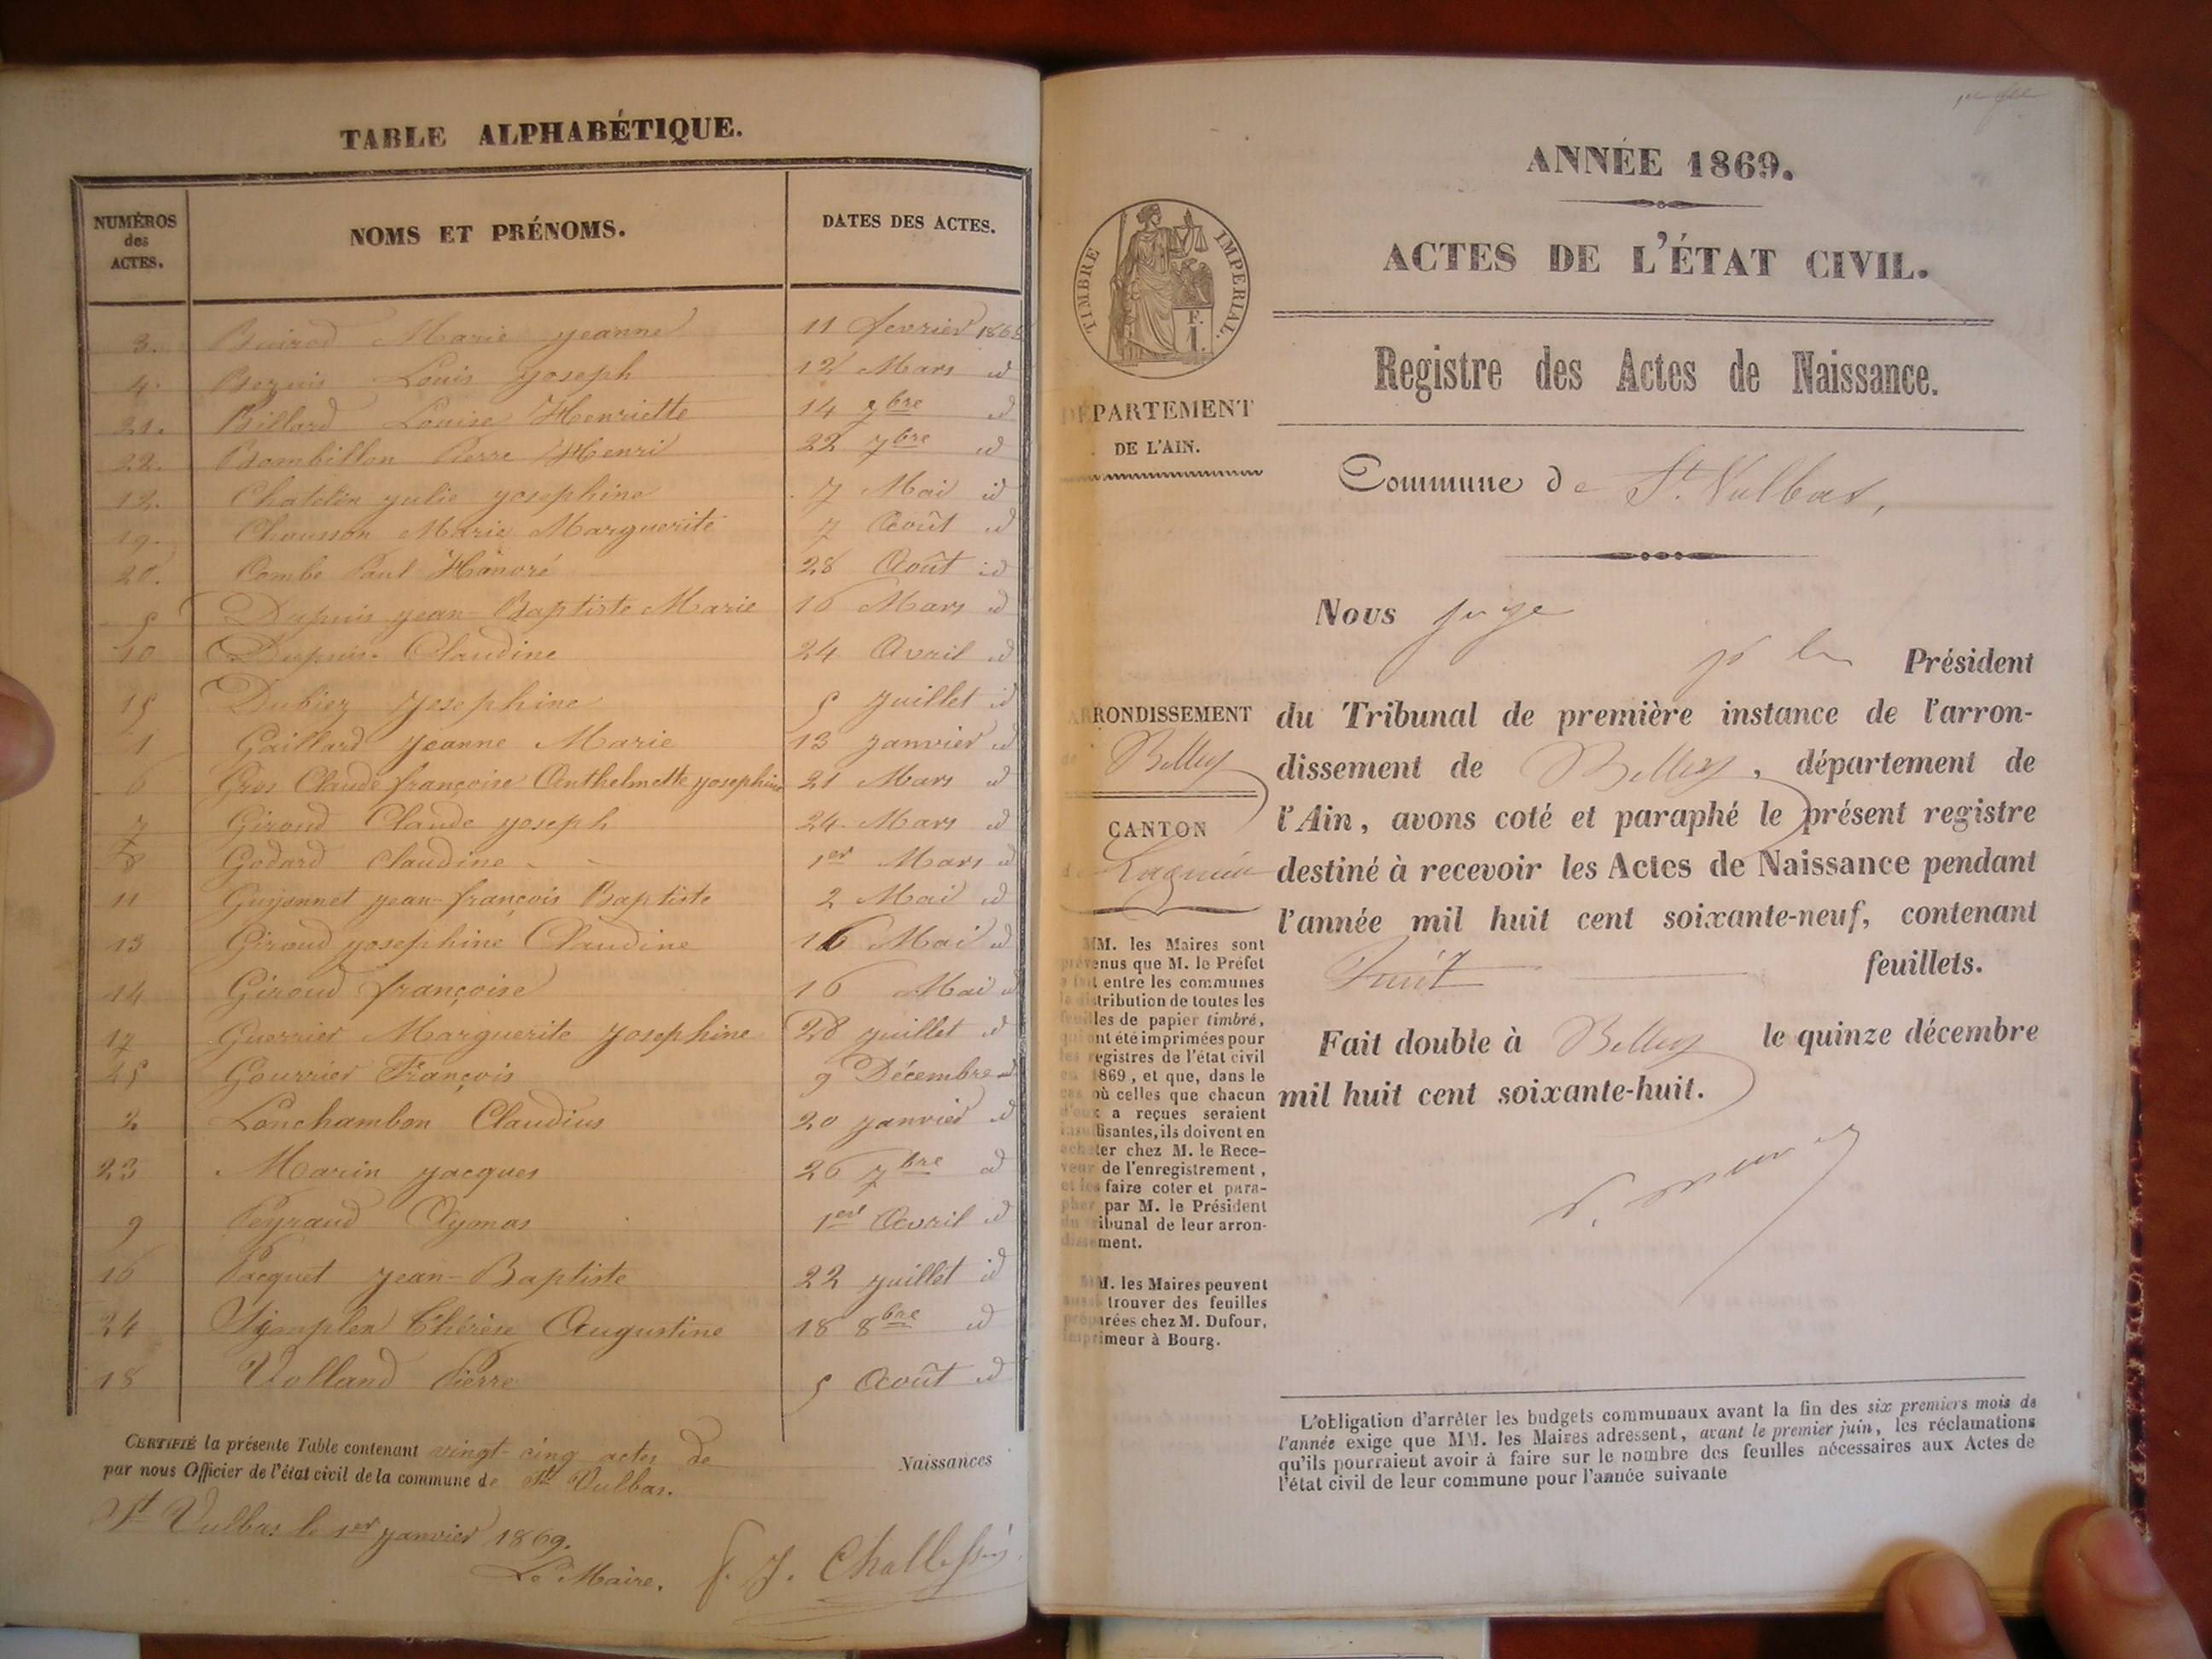 TABLE ALPHABÉTIQUE.
NUMÉROS des ACTES. NOMS ET PRÉNOMS. DATES DES ACTES.
3. Buirod Marie Jeanne 11 fevrier 1868
4. Louis Joseph 12 Mars id
21. Billard Louise Henriette 14 7bre id
22. Bombillon Pierre Henri 22 7bre id
12. Chatelin Julie Josephine 7 Mai id
19. Chausson Marie Marguerite 7 Août id
20. Combe Paul Honoré 28 Août id
5 Dupuis Jean-Baptiste Marie 16 Mars id
10 Dupuis Claudine 24 Avril id
15 Dubiez Josephine 5 Juillet id
1 Gaillard Jeanne Marie 13 Janvier id
6 Gros Claude françoise Anthelmette Josephine 21 Mars id
7 Giroud Claude Joseph 24 Mars id
8 Godard Claudine 1er Mars id
11 Guyonnet Jean-françois Baptiste 2 Mai id
13 Giroud Josephine Claudine 16 Mai id
14 Giroud françoise 16 Mai id
17 Guerrier Marguerite Josephine 28 Juillet id
25 Gourrier François 9 Décembre id
2 Lonchambon Claudius 20 Janvier id
23 Marin Jacques 26 7bre id
9 Peyraud Aymas 1er Avril id
16 Pacquet Jean-Baptiste 22 Juillet id
24 Thérèse Augustine 18 8bre id
18 Volland Pierre 5 Août id
CERTIFIÉ la présente Table contenant vingt-cinq actes de Naissances
par nous Officier de l'état civil de la commune de St Vulbas.
St Vulbas le 1er Janvier 1869.
Le Maire.
ANNÉE 1869.
ACTES DE L'ÉTAT CIVIL.
Registre des Actes de Naissance.
TIMBRE IMPERIAL.
F.
1.
DÉPARTEMENT
DE L'AIN.
Commune de St. Vulbas,
ARRONDISSEMENT
de Belley
CANTON
de Lagnieu
MM. les Maires sont
prévenus que M. le Préfet
a fait entre les communes
la distribution de toutes les
feuilles de papier timbré,
qui ont été imprimées pour
les registres de l'état civil
en 1869, et que, dans le
cas où celles que chacun
d'eux a reçues seraient
insuffisantes, ils doivent en
acheter chez M. le Rece-
veur de l'enregistrement,
et les faire coter et para-
pher par M. le Président
du tribunal de leur arron-
dissement.
MM. les Maires peuvent
aussi trouver des feuilles
préparées chez M. Dufour,
imprimeur à Bourg.
Nous juge
Président
du Tribunal de première instance de l'arron-
dissement de Belley, département de
l'Ain, avons coté et paraphé le présent registre
destiné à recevoir les Actes de Naissance pendant
l'année mil huit cent soixante-neuf, contenant
huit feuillets.
Fait double à Belley le quinze décembre
mil huit cent soixante-huit.
L'obligation d'arrêter les budgets communaux avant la fin des six premiers mois de
l'année exige que MM. les Maires adressent, avant le premier juin, les réclamations
qu'ils pourraient avoir à faire sur le nombre des feuilles nécessaires aux Actes de
l'état civil de leur commune pour l'année suivante